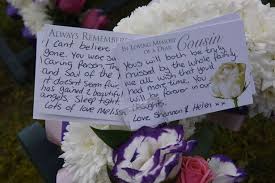 ALWAYS REMEMBER
I can't believe
gone. You were su
Caring Person, Th
And Soul of the
it doesn't seem fair
has gained 2 beautiful
angels. Sleep tight
Lots of love Meliss
IN LOVING MEMORY
OF A DEAR Cousin
You will both be truly
missed by the whole family
we all wish that you'd
had more time. You
will be forever in our
thoughts.
Love Shannon & Helen